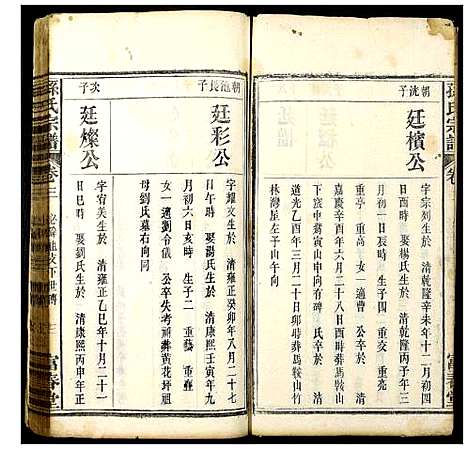 孫氏宗譜
卷
朝沈子
廷檳公
字宗列生於 清乾隆辛未年十二月初四
日 時 娶楊氏生於 清乾隆丙子年三
月初一日亥時 生子四 重奕 重亮
重亭 重高 女一 適曹 公卒於
嘉慶辛酉年六月二十八日時葬馬鞍山竹
下中蔣家寅山申向有碑 氏卒於
道光乙酉年三月二十日卯時葬馬鞍山竹
林灣屋左子山午向
朝沲長子
廷彩公
字耀文生於 清雍正癸卯年八月二十七
日午時 娶湯氏生於 清康熙壬寅年九
月初六日亥時 生子二 重藝 重
女一適劉令儀 公卒失考祠葬黃花坪祖
母劉氏墓右向同
次子
廷燦公
字宥美生於 清雍正乙巳年十月二十一
日巳時 娶劉氏生於 清康熙丙申年正
孫氏宗譜
卷二
富春堂